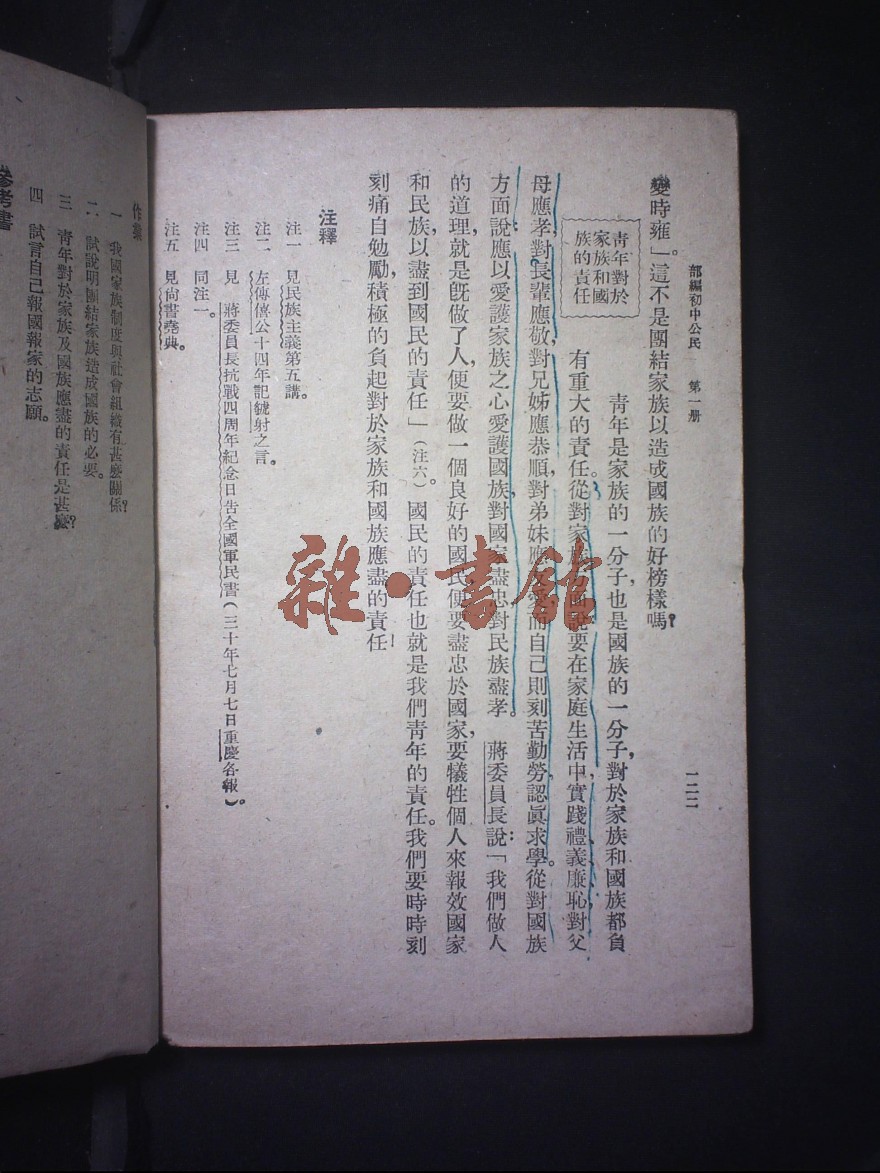 部編初中公民　第一册
一二二
變時雍」。這不是團結家族以造成國族的好榜樣嗎？
青年對於
家族和國
族的責任
青年是家族的一分子，也是國族的一分子，對於家族和國族都負
有重大的責任。從對家族方面說，要在家庭生活中，實踐禮、義、廉、恥，對父
母應孝，對長輩應敬，對兄姊應恭順，對弟妹應友愛，而自己則刻苦勤勞，認眞求學。從對國族
方面說：應以愛護家族之心愛護國族，對國家盡忠，對民族盡孝。　蔣委員長說：「我們做人
的道理，就是旣做了人，便要做一個良好的國民，便要盡忠於國家，要犧牲個人來報效國家
和民族，以盡到國民的責任」（注六）國民的責任也就是我們靑年的責任。我們要時時刻
刻痛自勉勵，積極的負起對於家族和國族應盡的責任！
注釋
注一　見民族主義第五講。
注二　左傳僖公十四年記虢射之言。
注三　見　蔣委員長抗戰四周年紀念日告全國軍民書（三十年七月七日重慶各報）。
注四　同注一。
注五　見尚書堯典。
一　我國家族制度與社會組織有甚麼關係？
二　試說明團結家族造成國族的必要。
三　靑年對於家族及國族應盡的責任是甚麼？
四　試言自己報國報家的志願。
參考書
雜·書館